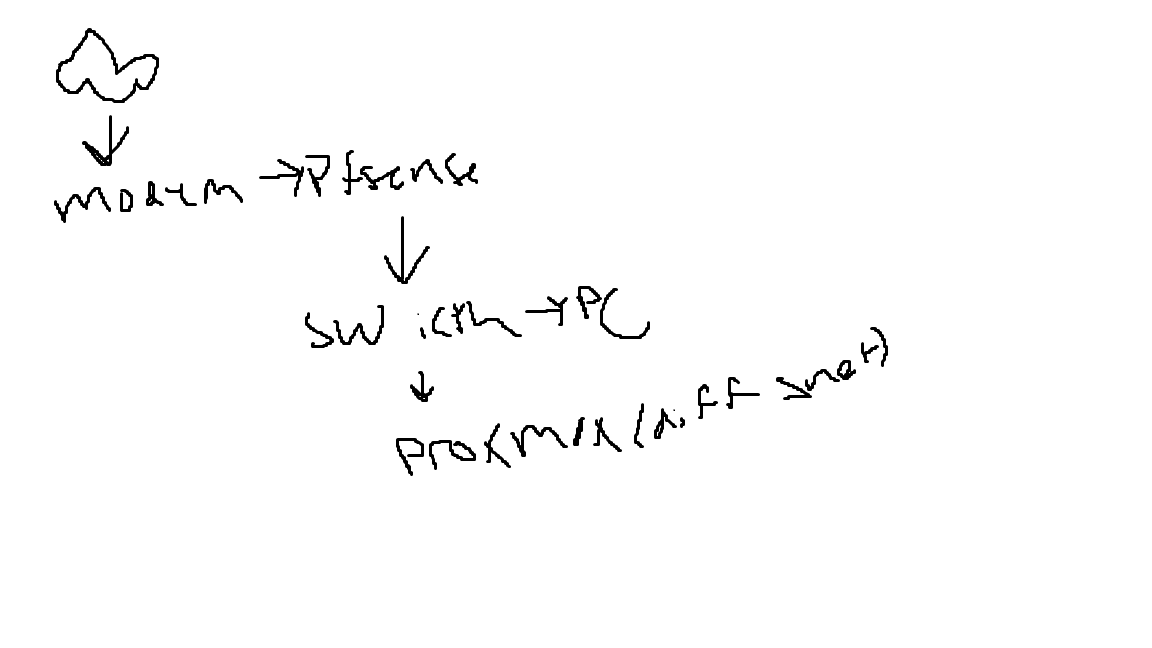 modem → Pfsense
swicth → PC
proxmix (diff >net)